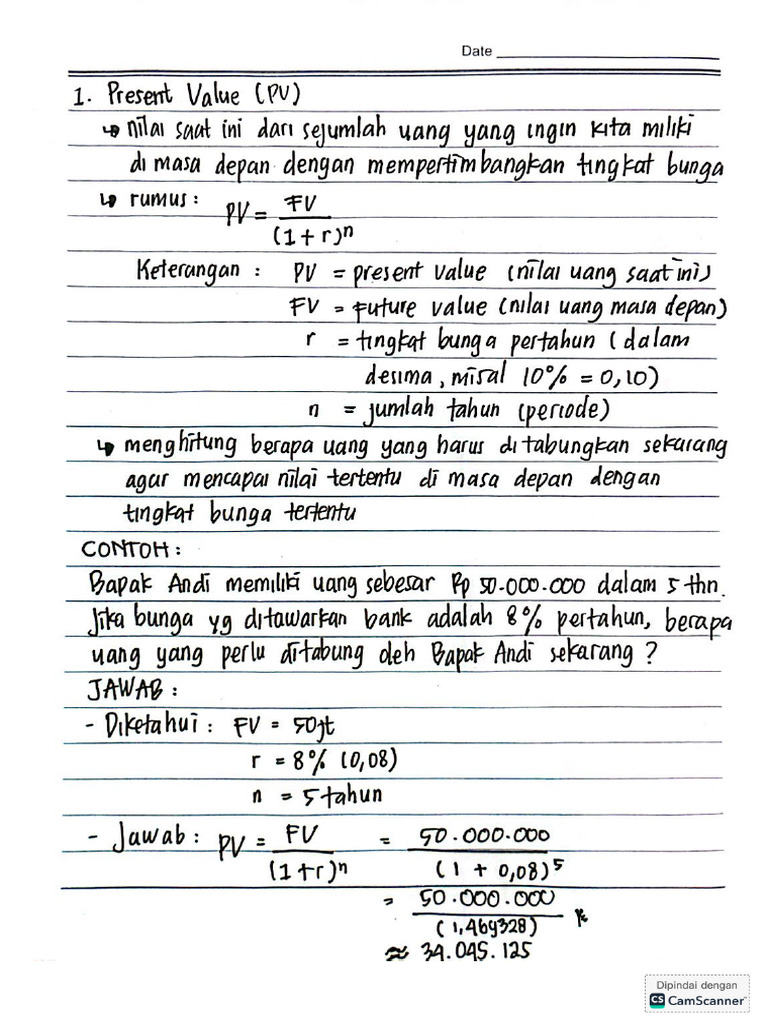 Date
1. Present Value (PV)
↳ nilai saat ini dari sejumlah uang yang ingin kita miliki
di masa depan dengan mempertimbangkan tingkat bunga
↳ rumus: PV = FV
(1+r)ⁿ
Keterangan : PV = present value (nilai uang saat ini)
FV = Future value (nilai uang masa depan)
r = tingkat bunga pertahun (dalam
desima, misal 10% = 0,10)
n = jumlah tahun (periode)
↳ menghitung berapa uang yang harus ditabungkan sekarang
agar mencapai nilai tertentu di masa depan dengan
tingkat bunga tertentu
CONTOH :
Bapak Andi memiliki uang sebesar Rp 50.000.000 dalam 5 thn.
Jika bunga yg ditawarkan bank adalah 8% pertahun, berapa
uang yang perlu ditabung oleh Bapak Andi sekarang ?
JAWAB :
- Diketahui : FV = 50jt
r = 8% (0,08)
n = 5 tahun
- Jawab : PV = FV = 50.000.000
(1+r)ⁿ (1 + 0,08)⁵
= 50.000.000
(1,469328)
≈ 34.045.125
Dipindai dengan
CS CamScanner